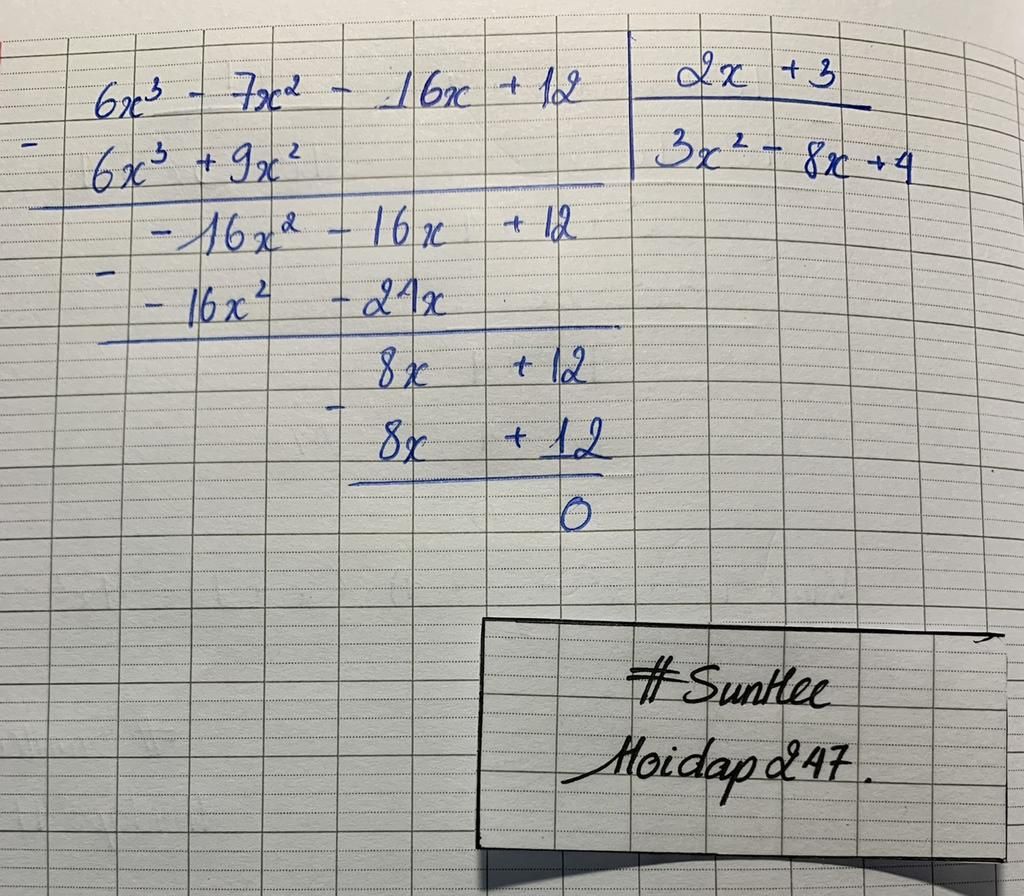 6x³ - 7x² - 16x + 12 | 2x + 3
- 6x³ + 9x² | 3x² - 8x + 4
- 16x² - 16x + 12
- - 16x² - 24x
8x + 12
- 8x + 12
0
#SunHee
Hoidap247.